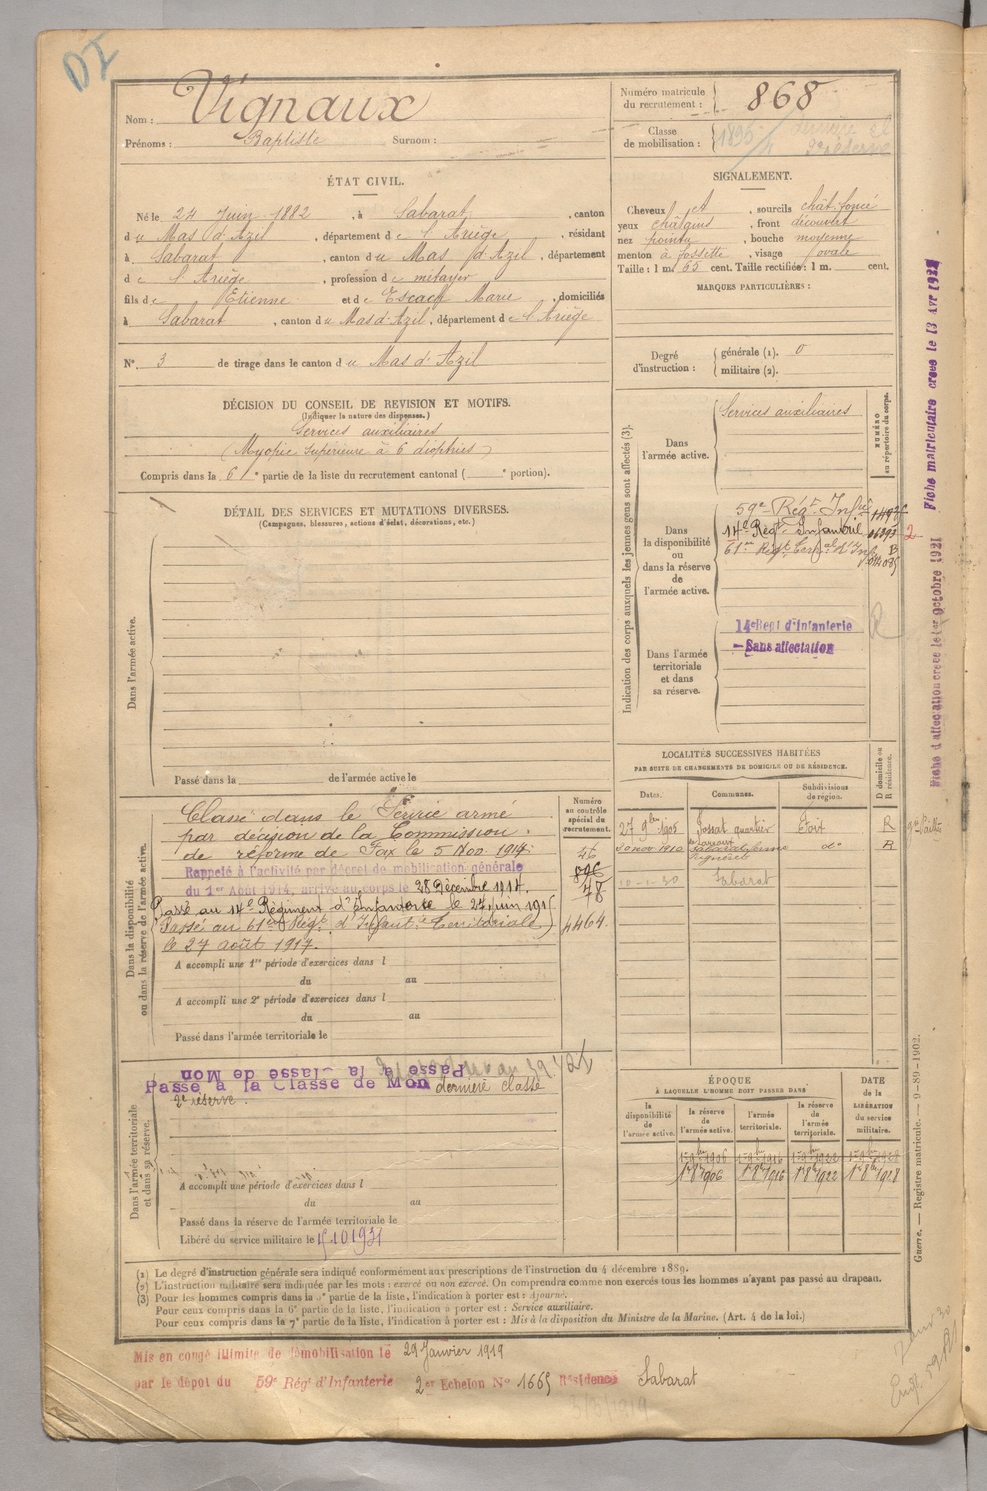 DI
Nom : Vignaux
Prénoms : Baptiste Surnom :
Numéro matricule du recrutement : 868
Classe de mobilisation : 1895
ÉTAT CIVIL.
Né le 24 Juin 1882, à Sabarat, canton
du Mas d'Azil, département de l'Ariège, résidant
à Sabarat, canton du Mas d'Azil, département
de l'Ariège, profession de métayer
fils de Etienne et de Escach Marie, domiciliés
à Sabarat, canton du Mas d'Azil, département de l'Ariège
N° 3 de tirage dans le canton du Mas d'Azil
SIGNALEMENT.
Cheveux et, sourcils chât. foncé
yeux châtains, front découvert
nez pointu, bouche moyenne
menton à fossette, visage ovale
Taille : 1 m. 65 cent. Taille rectifiée : 1 m. cent.
MARQUES PARTICULIÈRES :
Degré d'instruction : générale (1). 0
militaire (2).
DÉCISION DU CONSEIL DE REVISION ET MOTIFS.
(Indiquer la nature des dispenses.)
Services auxiliaires
(Myopie supérieure à 6 dioptries)
Compris dans la 6e partie de la liste du recrutement cantonal ( portion).
DÉTAIL DES SERVICES ET MUTATIONS DIVERSES.
(Campagnes, blessures, actions d'éclat, décorations, etc.)
Dans l'armée active.
Passé dans la de l'armée active le
Indication des corps auxquels les jeunes gens sont affectés (3).
NUMÉRO au répertoire du corps.
Dans l'armée active.
Services auxiliaires
Dans la disponibilité ou dans la réserve de l'armée active.
59e Régt Infie
14e Régt Infanterie
2
Dans l'armée territoriale et dans sa réserve.
14e Régt d'Infanterie
Sans affectation
R
Fiche d'affectation créée le 1er Octobre 1921
Fiche matriculaire créée le 13 Avr
LOCALITÉS SUCCESSIVES HABITÉES
PAR SUITE DE CHANGEMENTS DE DOMICILE OU DE RÉSIDENCE.
Dates. Communes. Subdivisions de région. D domicile ou R résidence.
27 9bre 1905 Fossat quartier Foix R
20 nov. 1910 do R
10-1-30 Sabarat
Dans la disponibilité ou dans la réserve de l'armée active.
Numéro au contrôle spécial du recrutement.
Classé dans le Service armé
par décision de la Commission
de réforme de Foix le 5 Nov. 1914.
Rappelé à l'activité par décret de mobilisation générale
du 1er Août 1914, arrivé au corps le 28 Décembre 1914.
Passé au 14e Régiment d'Infanterie le 27 juin 1915
Passé au 61e Régt d'Infantie Territoriale
le 27 août 1917.
46
48
4464
A accompli une 1re période d'exercices dans l
du au
A accompli une 2e période d'exercices dans l
du au
Passé dans l'armée territoriale le
Dans l'armée territoriale et dans sa réserve.
Passé à la Classe de Mon
Passé à la Classe de Mon dernière classe
2e réserve.
A accompli une période d'exercices dans l
du au
Passé dans la réserve de l'armée territoriale le
Libéré du service militaire le 15 10 1931
ÉPOQUE
À LAQUELLE L'HOMME DOIT PASSER DANS
DATE de la LIBÉRATION du service militaire.
la disponibilité de l'armée active. la réserve de l'armée active. l'armée territoriale. la réserve de l'armée territoriale.
1er 8bre 1906 1er 8bre 1916 1er 8bre 1922 1er 8bre 1928
Guerre. — Registre matricule. — 9-89-1902.
(1) Le degré d'instruction générale sera indiqué conformément aux prescriptions de l'instruction du 4 décembre 1889.
(2) L'instruction militaire sera indiquée par les mots : exercé ou non exercé. On comprendra comme non exercés tous les hommes n'ayant pas passé au drapeau.
(3) Pour les hommes compris dans la 5e partie de la liste, l'indication à porter est : Ajourné.
Pour ceux compris dans la 6e partie de la liste, l'indication à porter est : Service auxiliaire.
Pour ceux compris dans la 7e partie de la liste, l'indication à porter est : Mis à la disposition du Ministre de la Marine. (Art. 4 de la loi.)
Mis en congé illimité de démobilisation le 29 Janvier 1919
par le dépôt du 59e Régt d'Infanterie 2er Echelon N° 1665 Résidence Sabarat